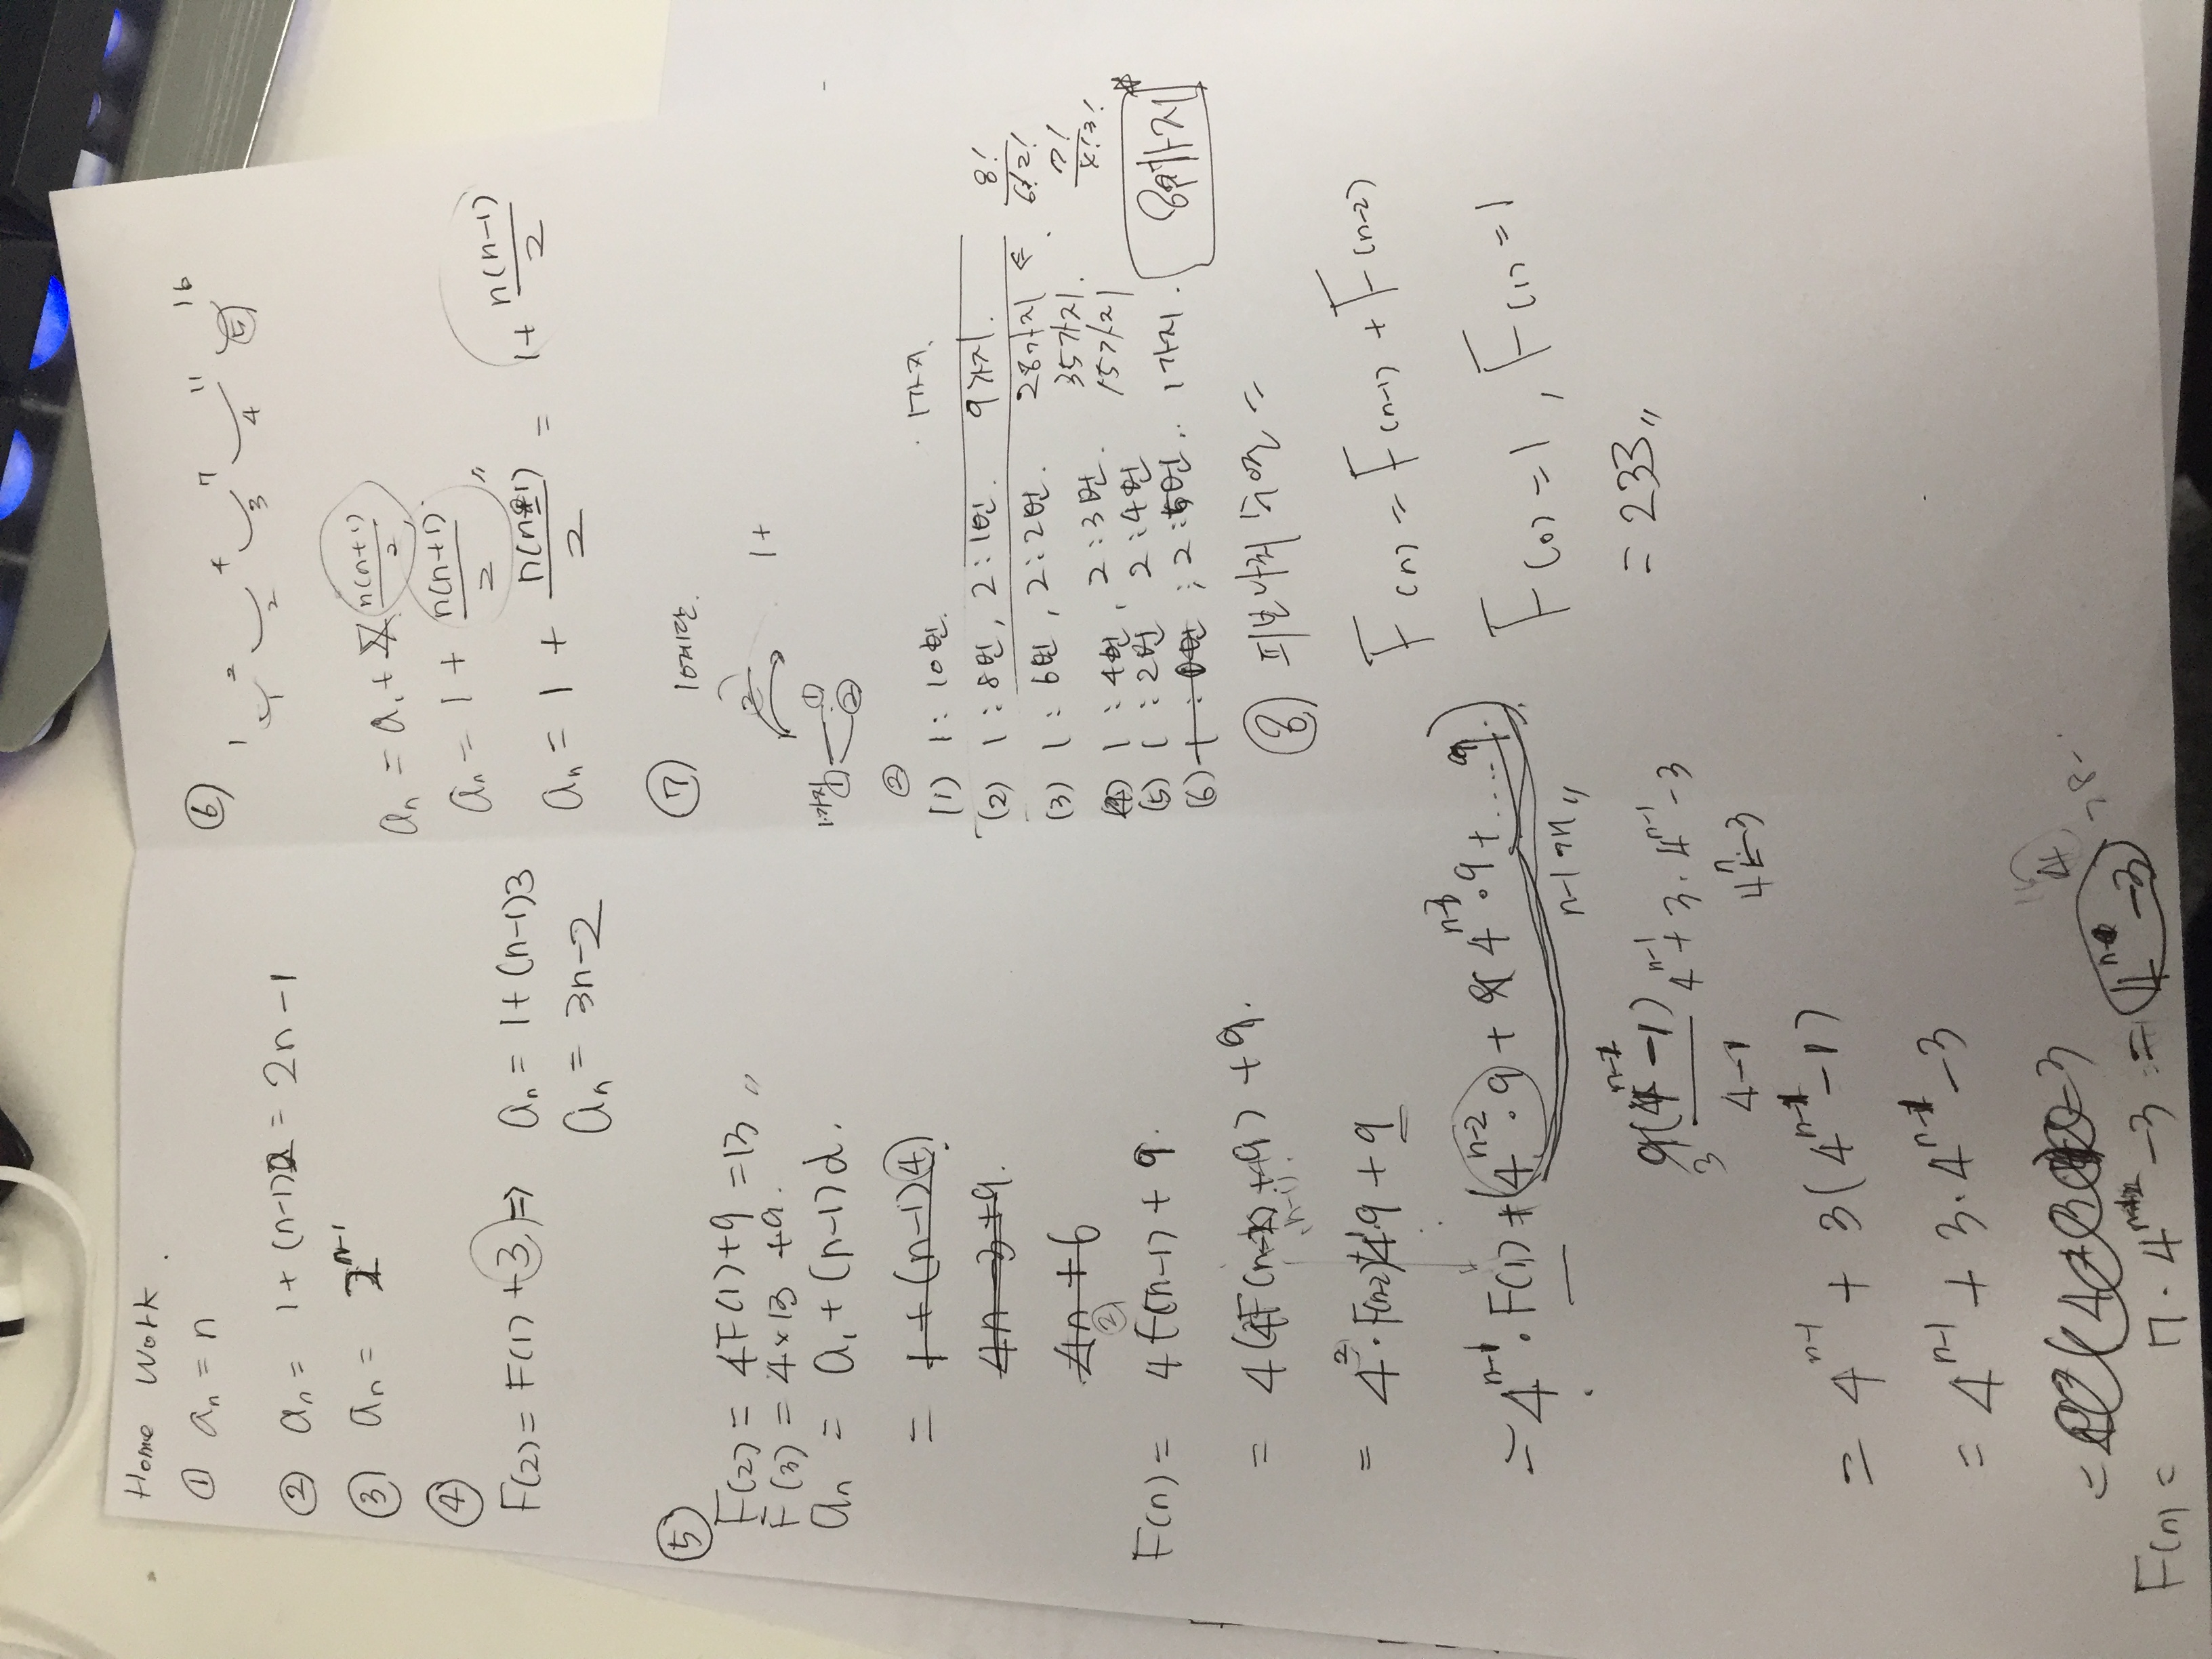 Home Work.
① aₙ = n
② aₙ = 1 + (n-1)2 = 2n - 1
③ aₙ = 2ⁿ⁻¹
④
F(2) = F(1) + 3 ⇒ aₙ = 1 + (n-1)3
aₙ = 3n - 2
⑤
F(2) = 4F(1) + 9 = 13 〃
F(3) = 4 × 13 + 9.
aₙ = a₁ + (n-1)d.
= 1 + (n-1)4
4n - 3 + 9.
4n + 6
②
F(n) = 4F(n-1) + 9.
= 4(4F(n-2) + 9) + 9.
(n-1).
= 4² · F(n-2) + 4·9 + 9
= 4ⁿ⁻¹ · F(1) + (4ⁿ⁻² · 9 + 4ⁿ⁻³ · 9 + .... 9)
n-1개 〃
3 9(4ⁿ⁻¹ - 1) / 4-1
4ⁿ⁻¹ + 3 · 4ⁿ⁻¹ - 3
4ⁿ - 3
= 4ⁿ⁻¹ + 3(4ⁿ⁻¹ - 1)
= 4ⁿ⁻¹ + 3 · 4ⁿ⁻¹ - 3
- 3
F(n) = 4ⁿ - 3
⑥
1 2 4 7 11 16
1 2 3 4 5
aₙ = a₁ + n(n+1)/2
aₙ = 1 + n(n+1)/2 〃
aₙ = 1 + n(n-1)/2 = 1 + n(n-1)/2
⑦ 10계단.
2
1 +
1가지 ① ① ②
②
(1) 1 : 10번. 1가지.
(2) 1 : 8번, 2 : 1번. 9가지.
(3) 1 : 6번, 2 : 2번. 28가지 ⇐ 8!/6!2!
(4) 1 : 4번, 2 : 3번. 35가지. 7!/4!3!
(5) 1 : 2번 2 : 4번 15가지
(6) 1 : 0번 ; 2 : 5번.. 1가지. 89가지
⑧ 피보나치 수열 =
F(n) = F(n-1) + F(n-2)
F(0) = 1, F(1) = 1
= 233 〃